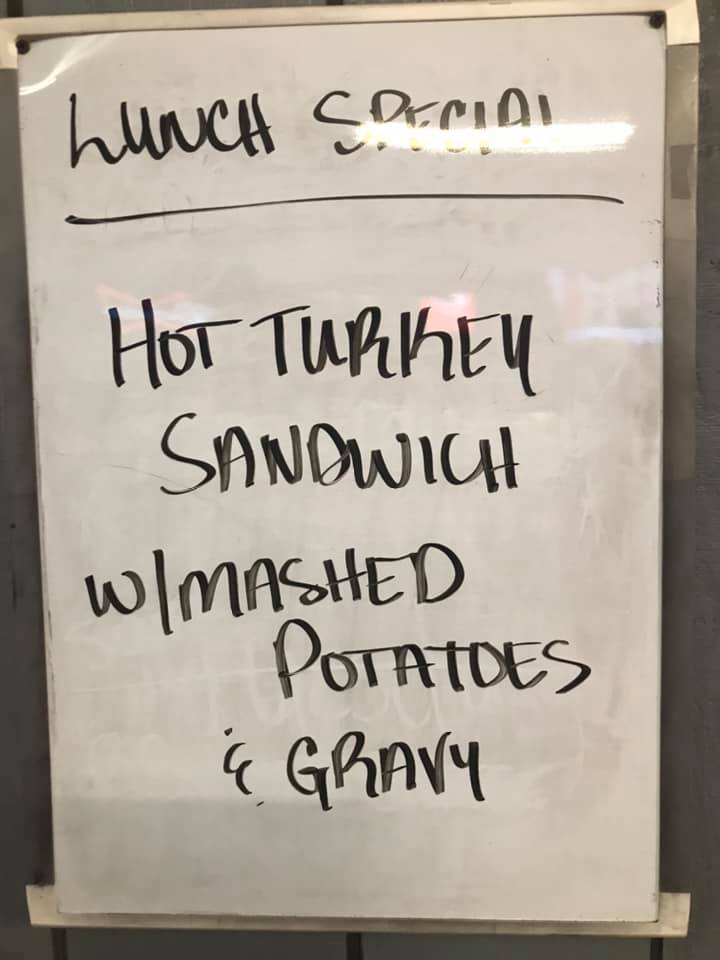 LUNCH SPECIAL
HOT TURKEY
SANDWICH
W/MASHED
POTATOES
& GRAVY